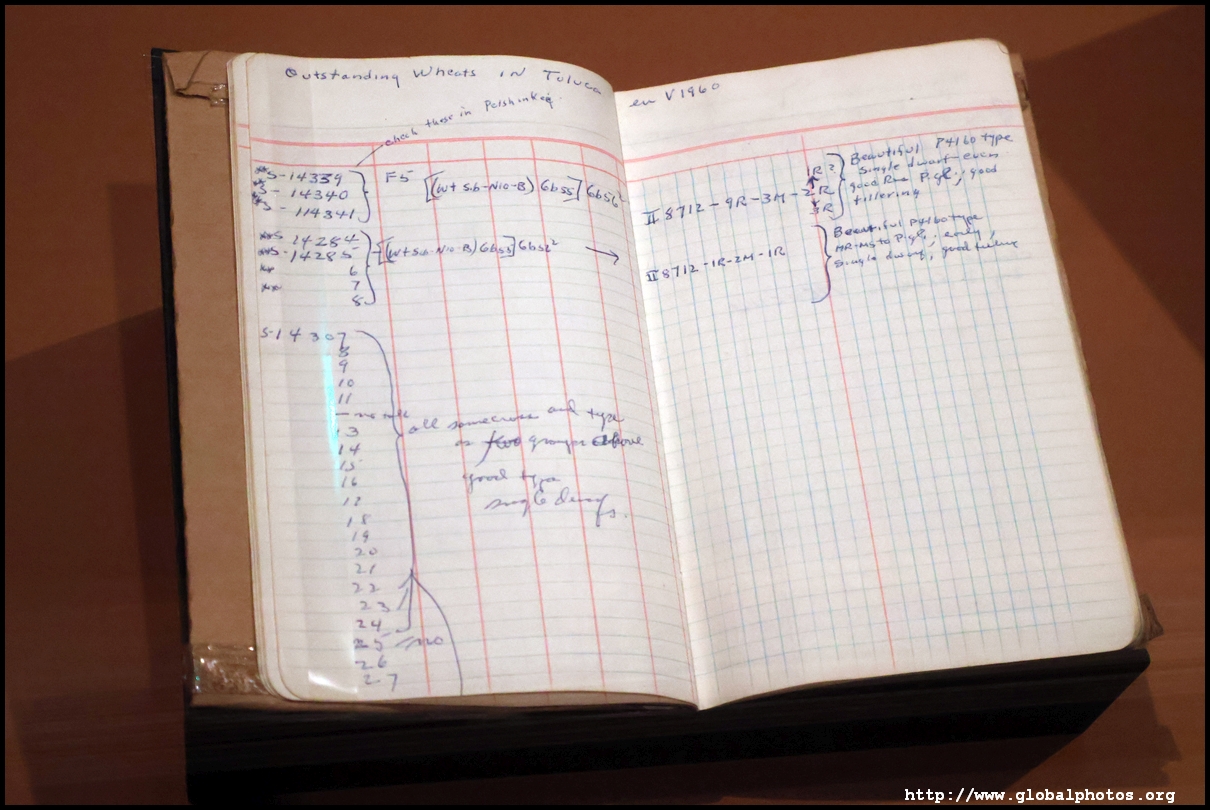 Outstanding Wheats in Toluca en V1960
check these in
**S-14339
S-14340
S-114341
F5 [(Wt Sib-N10-B) Gb55] Gb56²
II 8712-9R-3M-2R
1R?
3R
Beautiful P4160 type
single dwarf-even
good Rus P.gl., good
tillering
**S-14284
**S-14285
** 6
** 7
8
[(Wt Sib-N10-B) Gb55] Gb56²
II 8712-1R-2M-1R
Beautiful P4160 type
MR-MS to P.gl., early,
single dwarf, good
S-14307
8
9
10
11
13
14
15
16
12
18
19
20
21
22
23
24
25 no
26
27
all same cross and type
as two groups above
good type
single dwarfs.
http://www.globalphotos.org